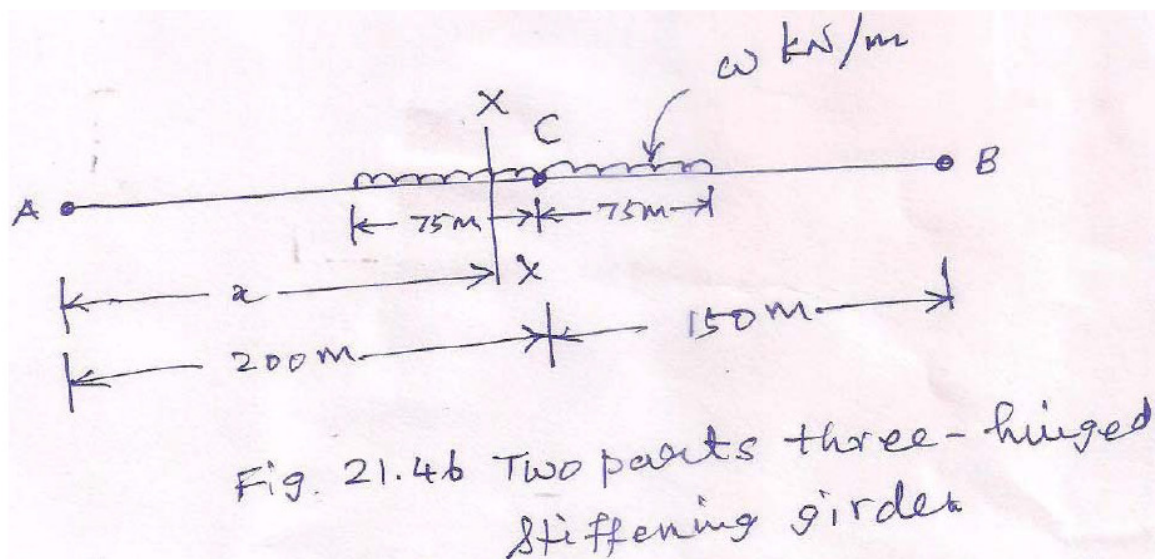 ω kN/m
X
C
A
B
75m
75m
x
X
200m
150m
Fig. 21.4b Two parts three-hinged
stiffening girder